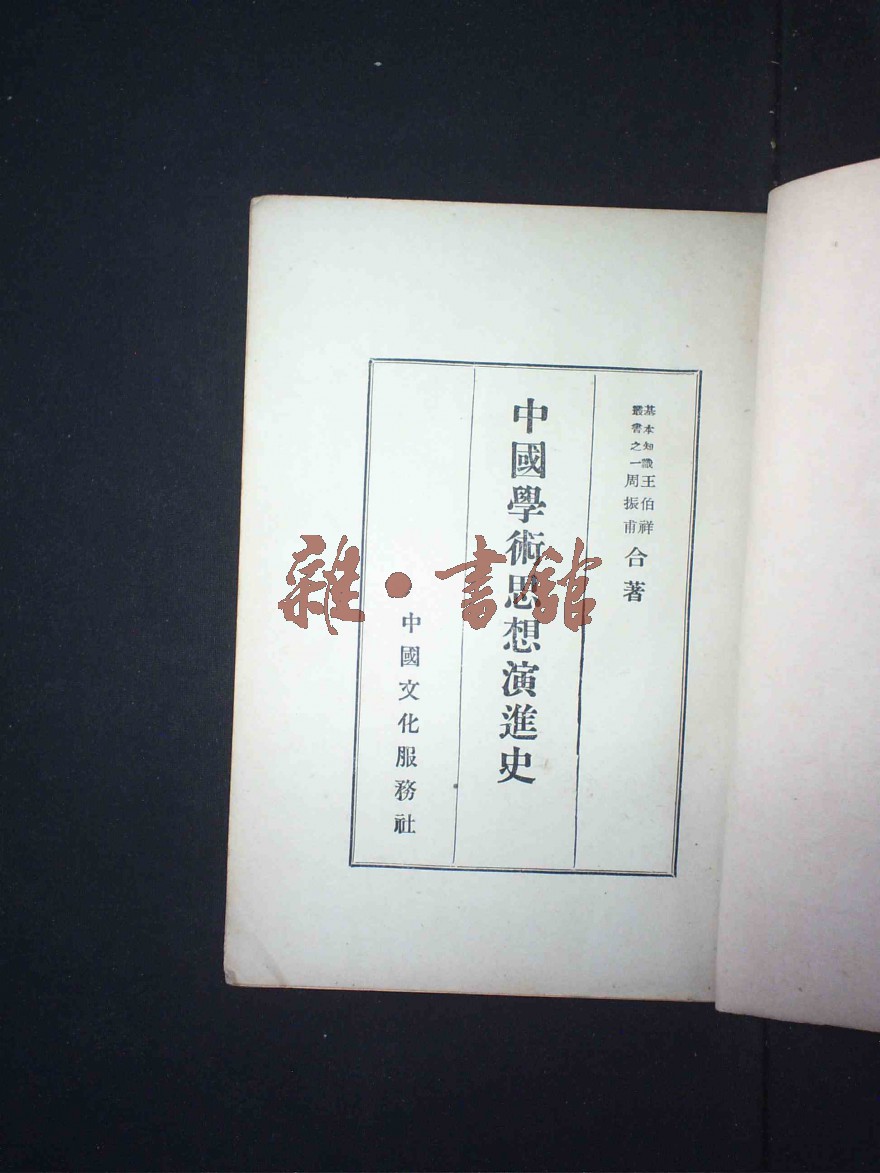 基本知識
叢書之一
王伯祥
周振甫
合著
中國學術思想演進史
中國文化服務社
雜·書館